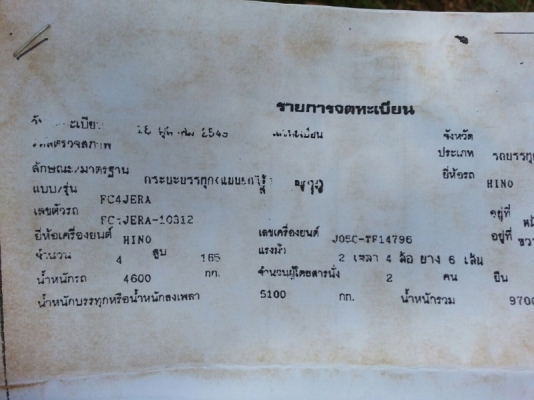 รายการจดทะเบียน
จังหวัด
ประเภท รถบรรทุก
ลักษณะ/มาตรฐาน กระบะบรรทุก ยี่ห้อรถ HINO
แบบ/รุ่น FC4JERA
เลขตัวรถ FC4JERA-10312 อยู่ที่
ยี่ห้อเครื่องยนต์ HINO เลขเครื่องยนต์ J05C-TF14796 อยู่ที่
จำนวน 4 สูบ 165 แรงม้า 2 เพลา 4 ล้อ ยาง 6 เส้น
น้ำหนักรถ 4600 กก. จำนวนผู้โดยสารนั่ง 2 คน ยืน
น้ำหนักบรรทุกหรือน้ำหนักลงเพลา 5100 กก. น้ำหนักรวม 9700